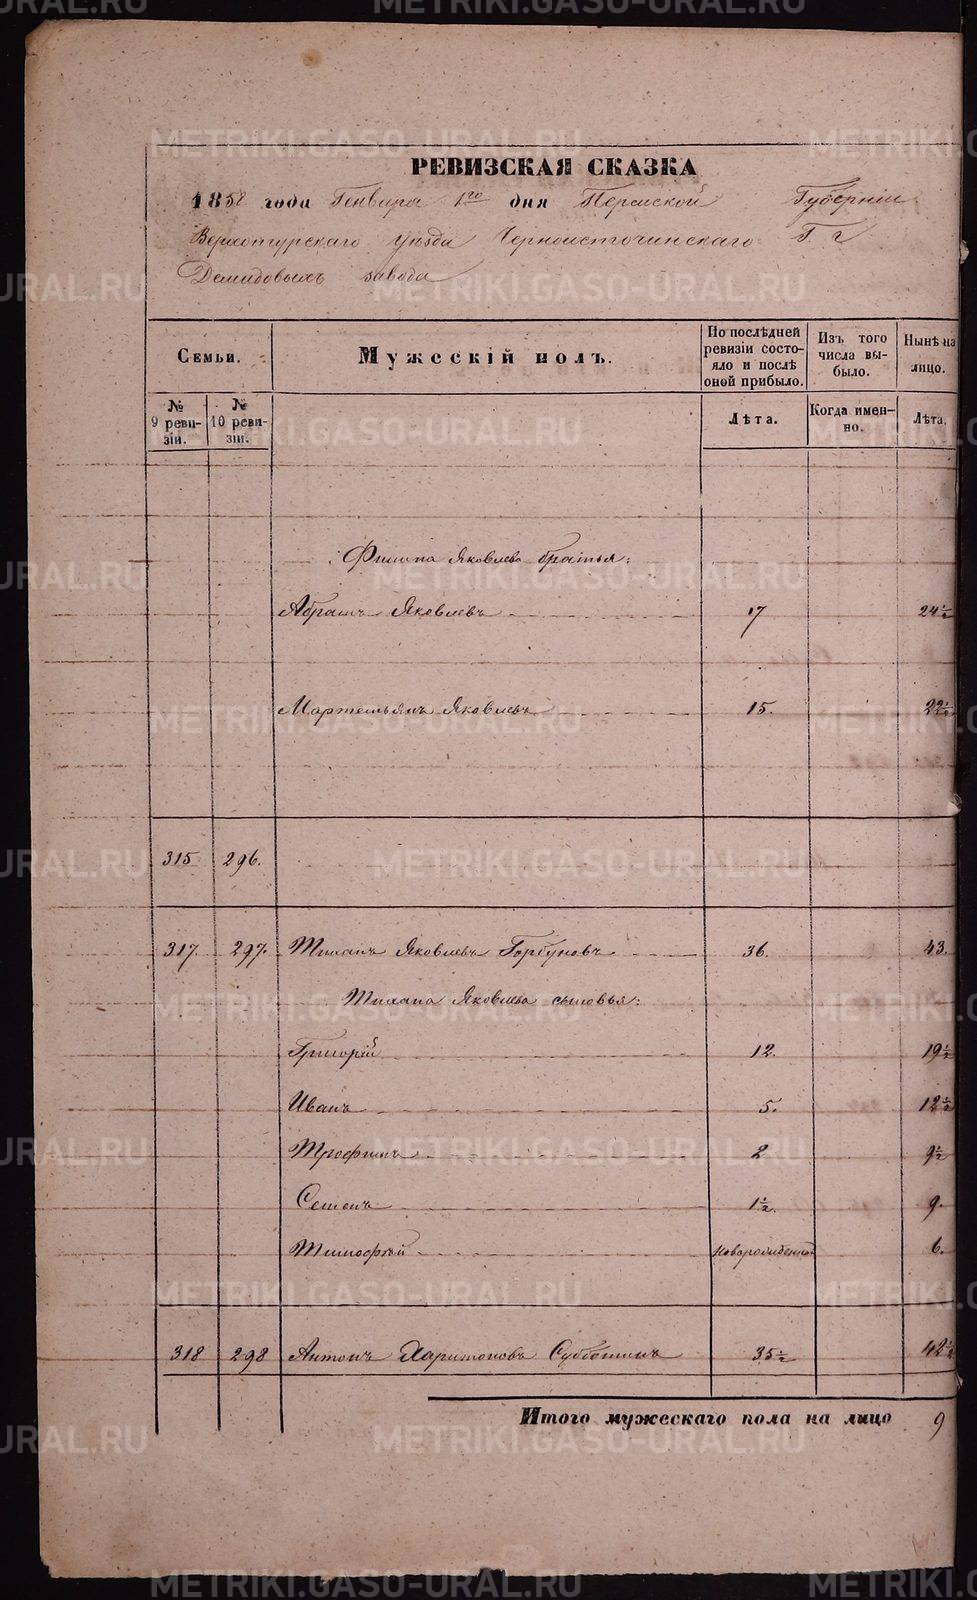 РЕВИЗСКАЯ СКАЗКА
1858 года Генваря 1го дня Пермской Губернии
Верхотурскаго уѣзда Черноисточинскаго Г г
Демидовыхъ завода
Семьи.
Мужескій полъ.
По послѣдней ревизіи состояло и послѣ оной прибыло.
Изъ того числа выбыло.
Нынѣ на лицо.
№ 9 ревизіи.
№ 10 ревизіи.
Лѣта.
Когда именно.
Лѣта.
Филипа Яковлева братья:
Абрамъ Яковлевъ 17 24½
Мартемьянъ Яковлевъ 15. 22½
315 296.
317. 297. Тиханъ Яковлевъ Горбуновъ 36. 43.
Тихана Яковлева сыновья:
Григорій 12. 19½
Иванъ 5. 12½
Трофимъ 2 9½
Семенъ 1½. 9.
Тимофей новорожденной 6.
318 298 Антонъ Харитоновъ Субботинъ 35½ 42½
Итого мужескаго пола на лицо 9
METRIKI.GASO-URAL.RU